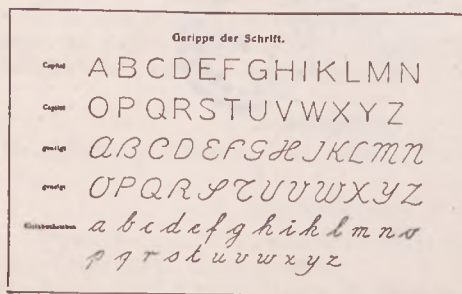 Gerippe der Schrift.
Capital A B C D E F G H I K L M N
Capital O P Q R S T U V W X Y Z
geneigt A B C D E F G H J K L M N
geneigt O P Q R S T U V W X Y Z
Kleinbuchstaben a b c d e f g h i k l m n o
p q r s t u v w x y z